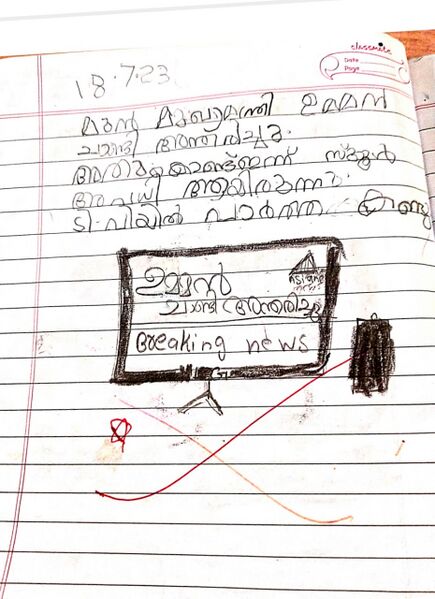 classmate
Date
Page
18.7.23
മുൻ മുഖ്യമന്ത്രി ഉമ്മൻ
ചാണ്ടി അന്തരിച്ചു.
സ്കൂൾ
അവധി ആയിരുന്നു.
ടി.വിയിൽ വാർത്ത കണ്ടു
ഉമ്മൻ
ചാണ്ടി അന്തരിച്ചു
Breaking news